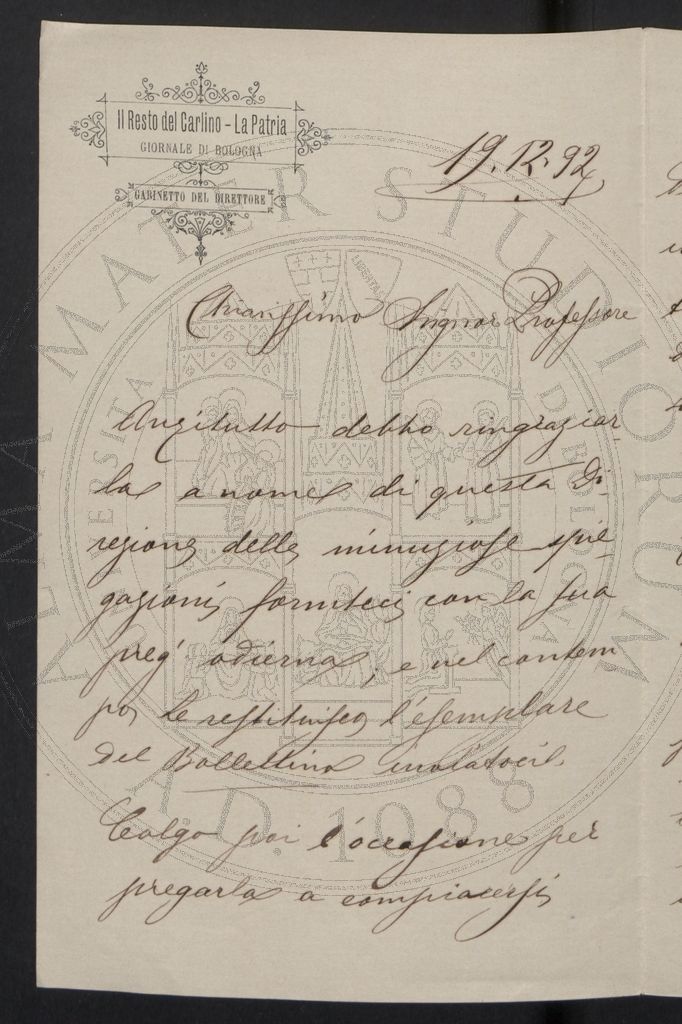 Il Resto del Carlino - La Patria
GIORNALE DI BOLOGNA
GABINETTO DEL DIRETTORE
19.12.92
Chiarissimo Signor Professore
Anzitutto debbo ringraziar-
la a nome di questa Di-
rezione delle minuziose spie-
gazioni forniteci con la sua
preg' odierna, e nel contem
po Le restituisco l'esemplare
del Bollettino inviatoci.
Colgo poi l'occasione per
pregarla a compiacersi
ALMA MATER STUDIORUM
UNIVERSITA DI BOLOGNA
LIBERTAS
A.D. 1088